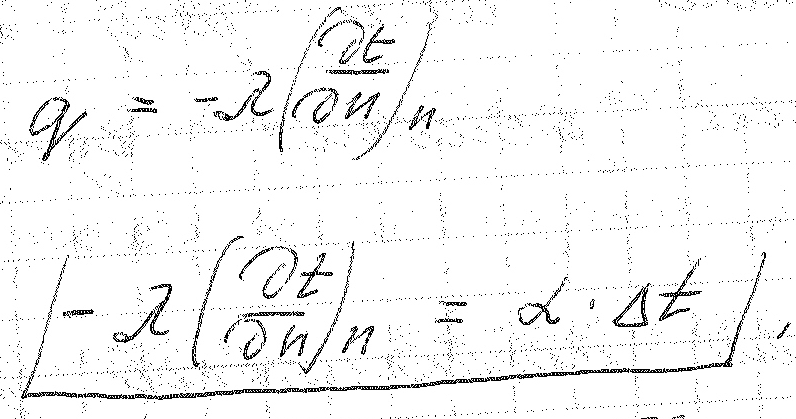 q = -λ(∂t/∂n)n
-λ(∂t/∂n)n = α·Δt,